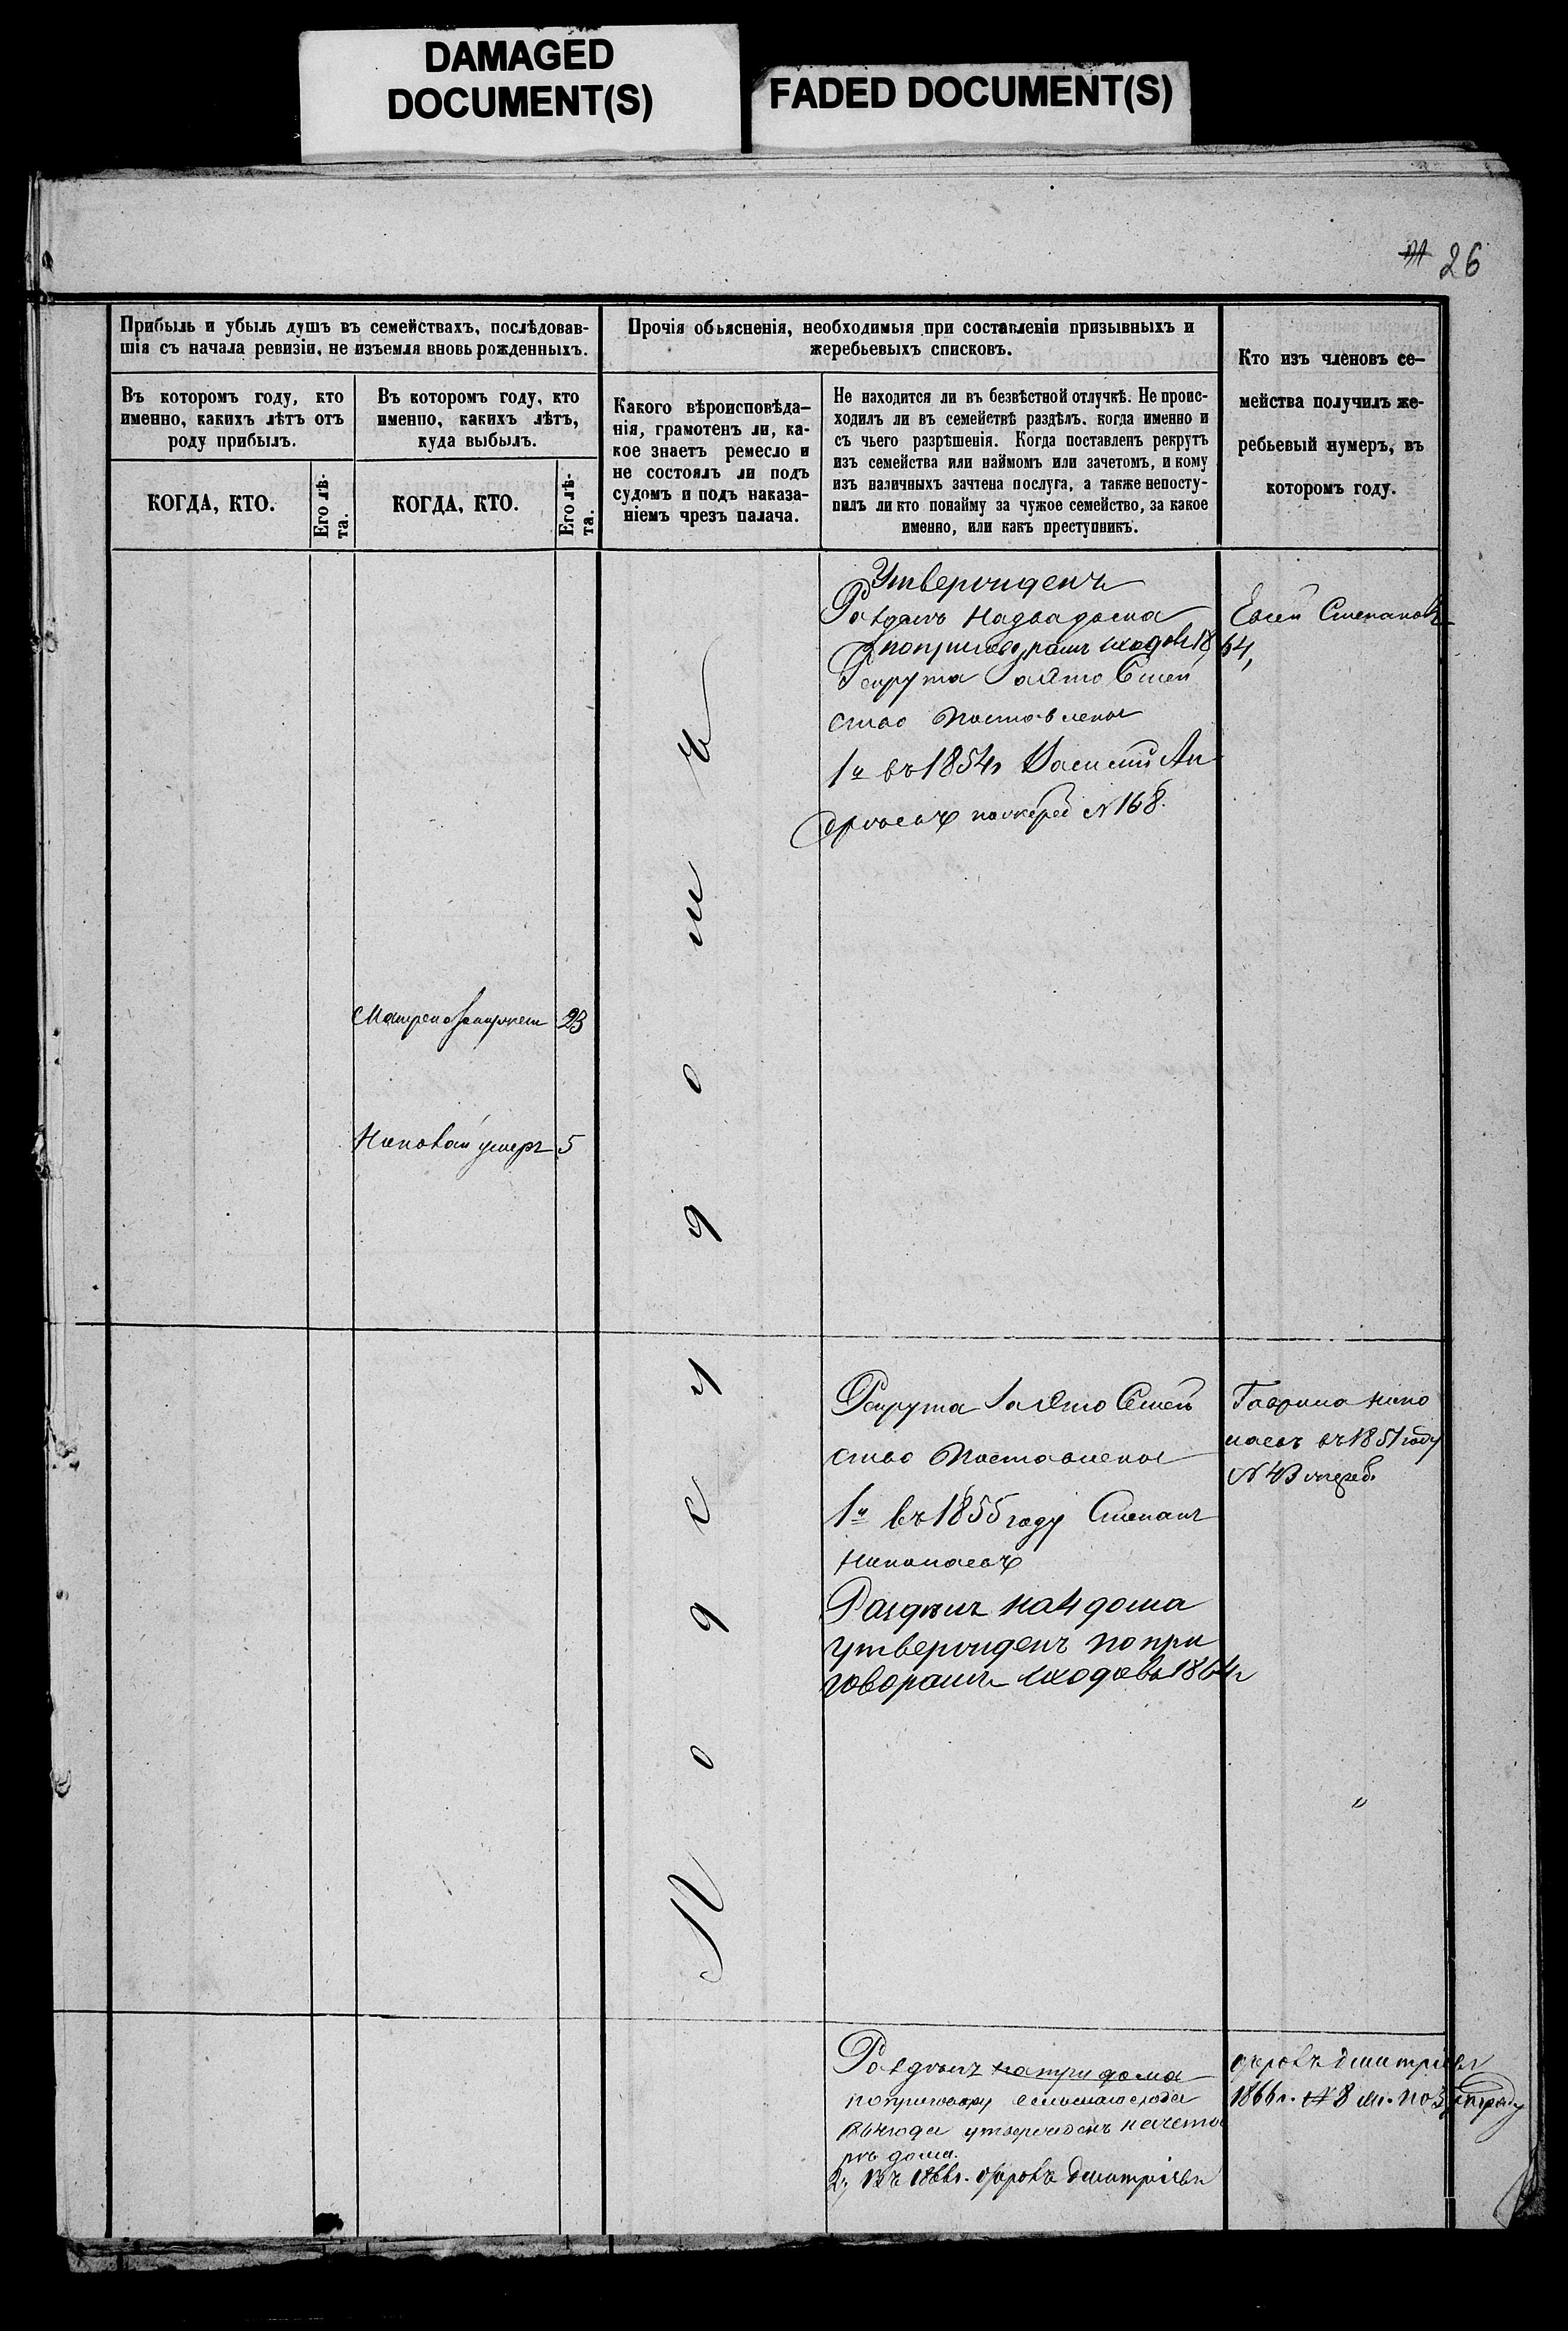 DAMAGED
DOCUMENT(S)
FADED DOCUMENT(S)
26
Прибыль и убыль душъ въ семействахъ, послѣдовав-
шія съ начала ревизіи, не изъемля вновь рожденныхъ.
Прочія объясненія, необходимыя при составленіи призывныхъ и
жеребьевыхъ списковъ.
Кто изъ членовъ се-
мейства получилъ же-
ребьевый нумеръ, въ
которомъ году.
Въ которомъ году, кто
именно, какихъ лѣтъ отъ
роду прибылъ.
Въ которомъ году, кто
именно, какихъ лѣтъ,
куда выбылъ.
Какого вѣроисповѣда-
нія, грамотенъ ли, ка-
кое знаетъ ремесло и
не состоялъ ли подъ
судомъ и подъ наказа-
ніемъ чрезъ палача.
Не находится ли въ безвѣстной отлучкѣ. Не проис-
ходилъ ли въ семействѣ раздѣлъ, когда именно и
съ чьего разрѣшенія. Когда поставленъ рекрутъ
изъ семейства или наймомъ или зачетомъ, и кому
изъ наличныхъ зачтена послуга, а также непосту-
пилъ ли кто понайму за чужое семейство, за какое
именно, или какъ преступникъ.
КОГДА, КТО.
Его лѣ-
та.
КОГДА, КТО.
Его лѣ-
та.
Утвержденъ
Раздѣлъ на два дома
по приговорамъ сходовъ 1864,
Рекрута За Это Семей
ство Поставлены
1й въ 1854г Василій Ан
дреевъ № 168.
Евсей Степановъ
Матрена замужем 23
Николай умеръ 5
Рекрута За Это Семей
ство Поставлены
1й въ 1855 году Степанъ
Николаевъ
Раздѣлъ на 4 дома
утвержденъ по при
говорамъ сходовъ 1864г
Гаврила Нико
лаевъ въ 1851 году
№ 43
Раздѣлъ на три дома
по приговору схода
1864 года утвержденъ на четы
ре дома.
2й Въ 1866г. Фролъ Дмитріевъ
Фролъ Дмитріевъ
1866г. № 8